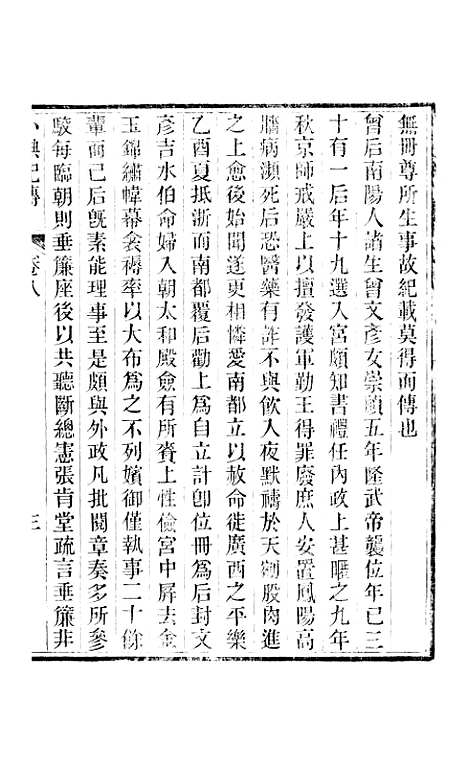 無冊尊所生事故紀載莫得而傳也
曾后南陽人諸生曾文彥女崇禎五年隆武帝襲位年已三
十有一后年十九選入宮頗知書禮任內政上甚暱之九年
秋京師戒嚴上以擅發護軍勤王得罪廢庶人安置鳳陽高
牆病瀕死后恐醫藥有詐不與飲入夜默禱於天割股肉進
之上愈後始聞遂更相憐愛南都立以赦命徙廣西之平樂
乙酉夏抵浙而南都覆后勸上為自立計卽位冊為后封文
彥吉水伯命婦入朝太和殿僉有所賚上性儉宮中屏去金
玉錦繡幃幕衾褥率以大布為之不列嬪御僅執事二十餘
輩而已后旣素能理事至是頗與外政凡批閱章奏多所參
駁每臨朝則垂簾座後以共聽斷總憲張肯堂疏言垂簾非
小腆紀傳 卷八 三